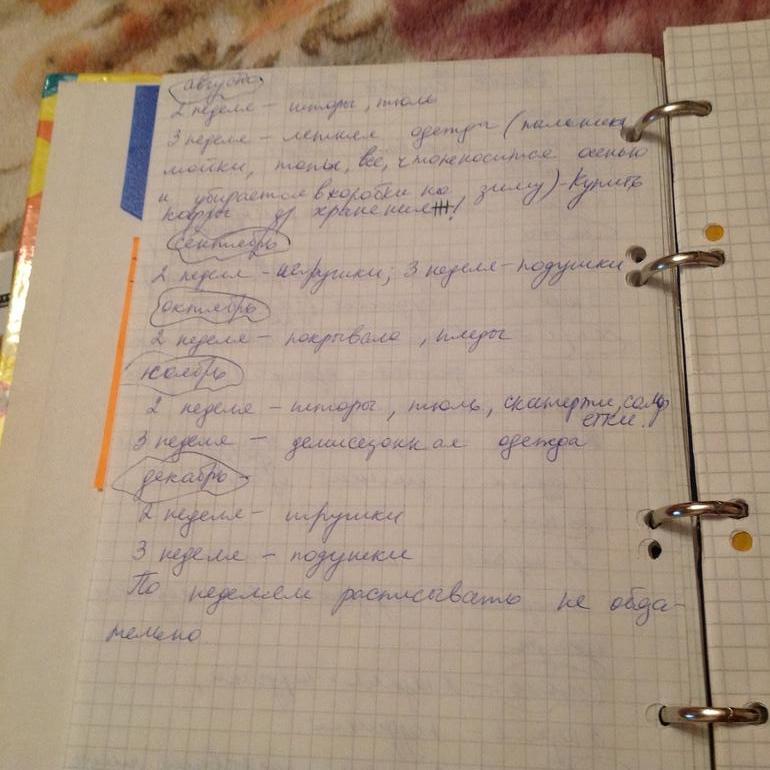 август
2 неделя – шторы, тюль
3 неделя – летняя одежда (
майки, топы, все, что не носится осенью
и убирается в коробки на зиму) – Купить
др хранения!
сентябрь
2 неделя – игрушки; 3 неделя – подушки
октябрь
2 неделя – покрывала, пледы
ноябрь
2 неделя – шторы, тюль, скатерти, салф
етки.
3 неделя – демисезонная одежда
декабрь –
2 неделя – игрушки
3 неделя – подушки
По неделям расписывать не обяза-
тельно